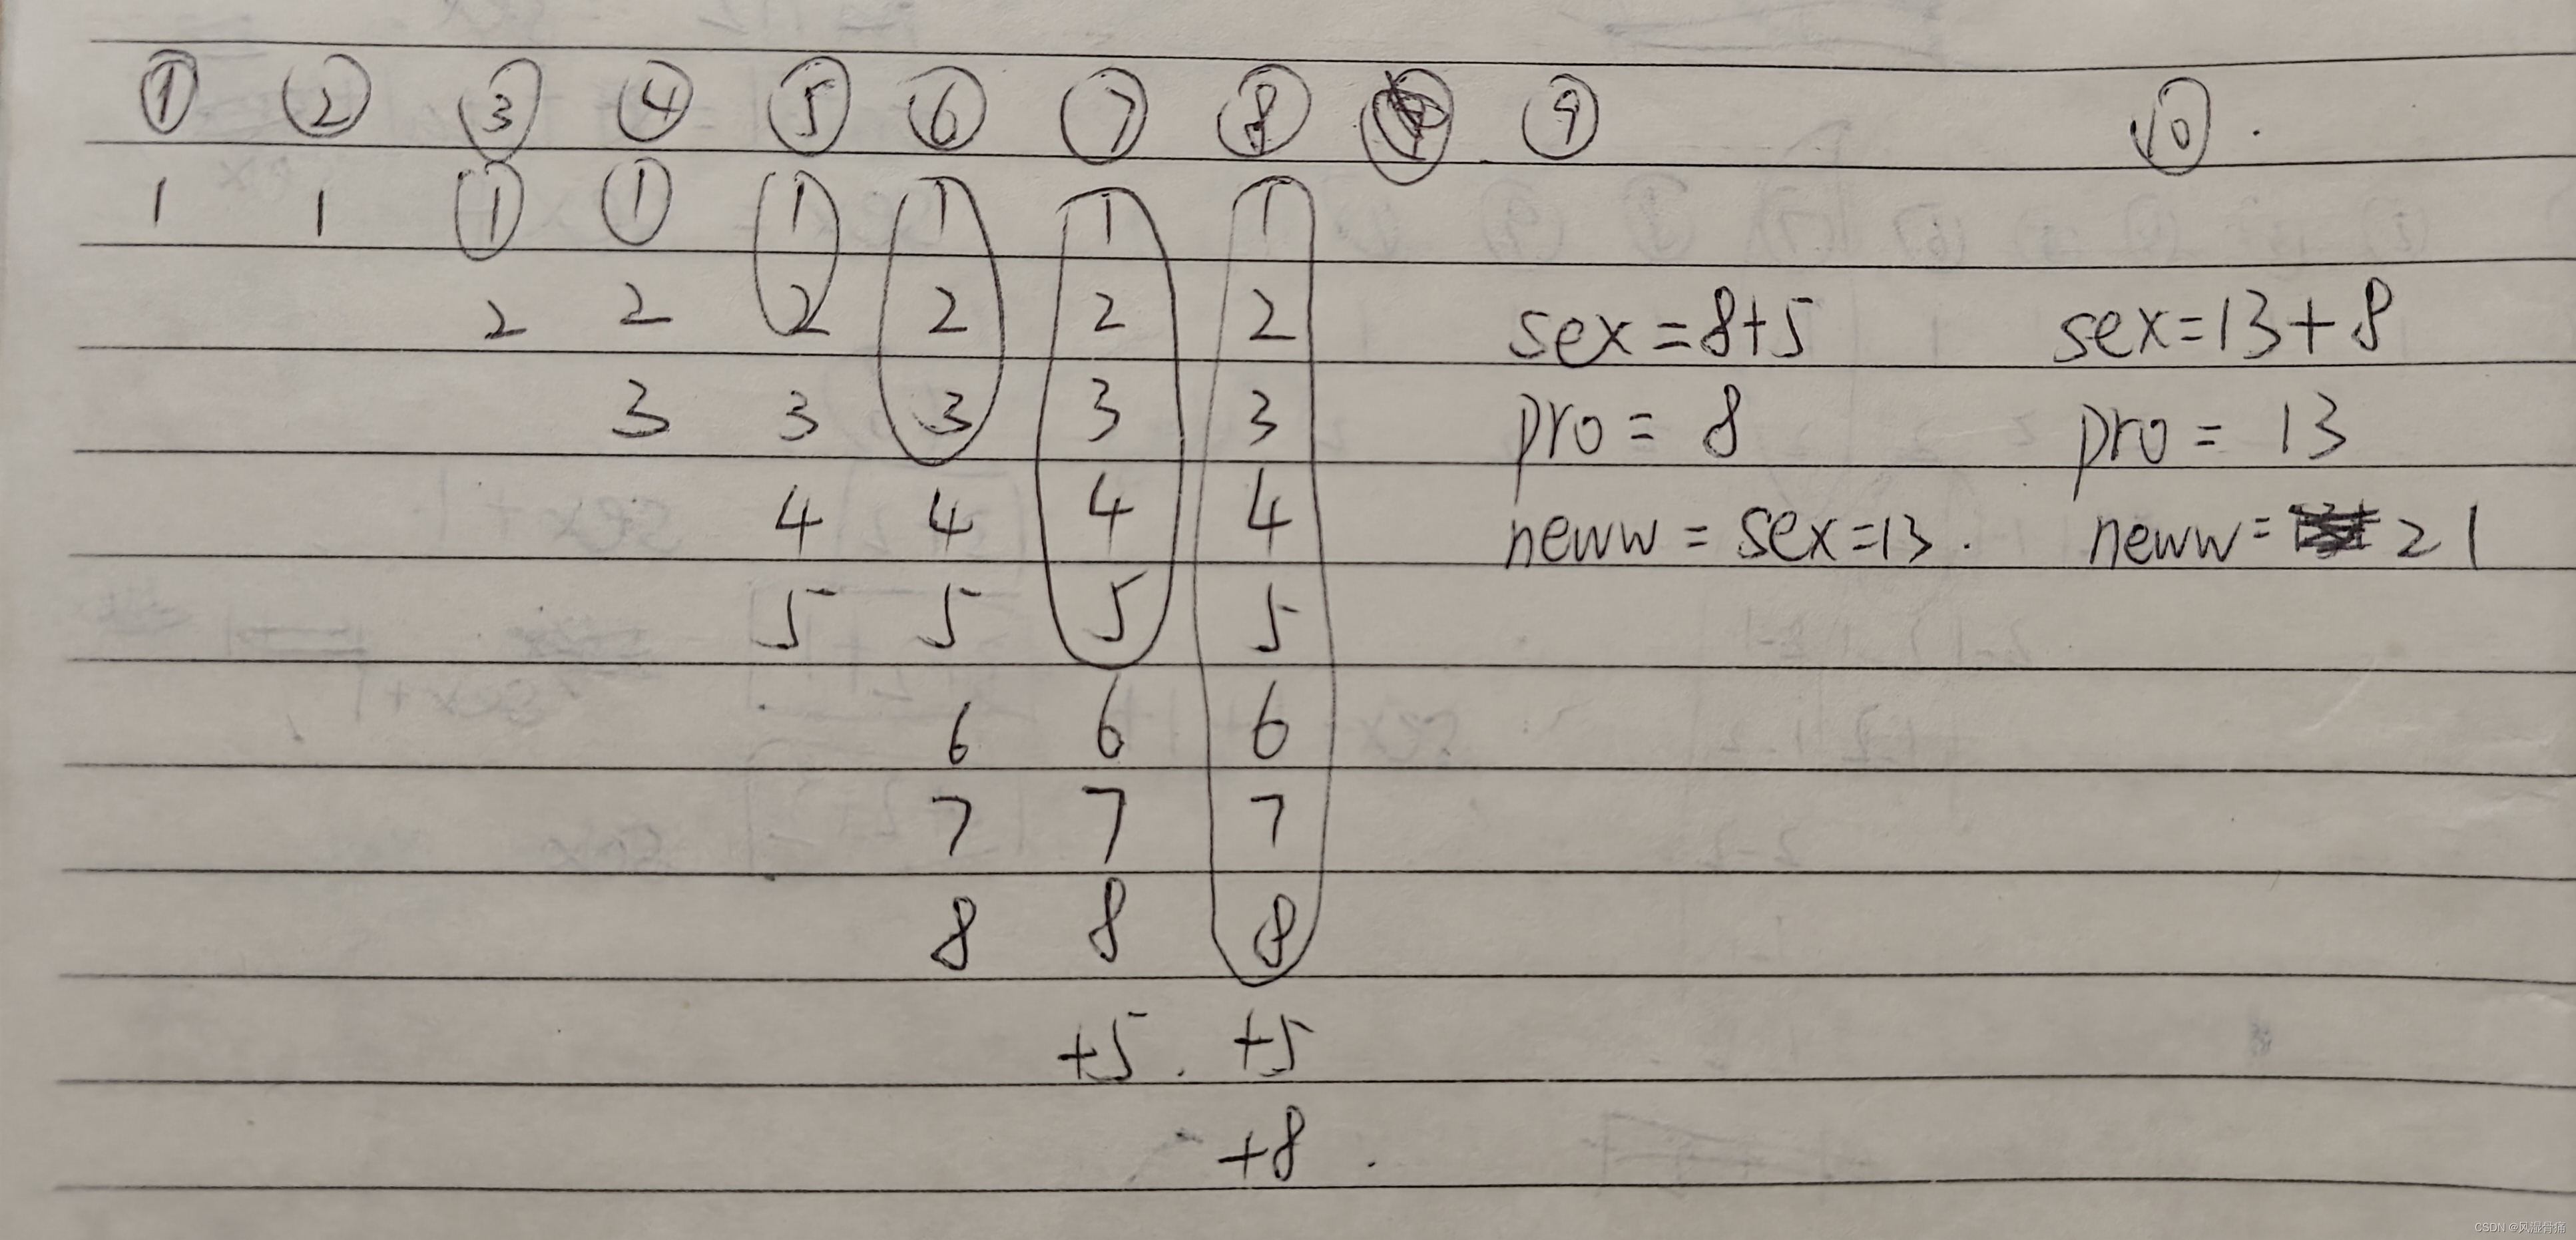 ① ② ③ ④ ⑤ ⑥ ⑦ ⑧ ⑨ ⑩ .
1 1 1 1 1 1 1 1
2 2 2 2 2 2 sex=8+5 sex=13+8
3 3 3 3 3 pro = 8 pro = 13
4 4 4 4 neww = sex=13. neww= 21
5 5 5 5
6 6 6
7 7 7
8 8 8
+5. +5
+8.
CSDN @风湿骨痛